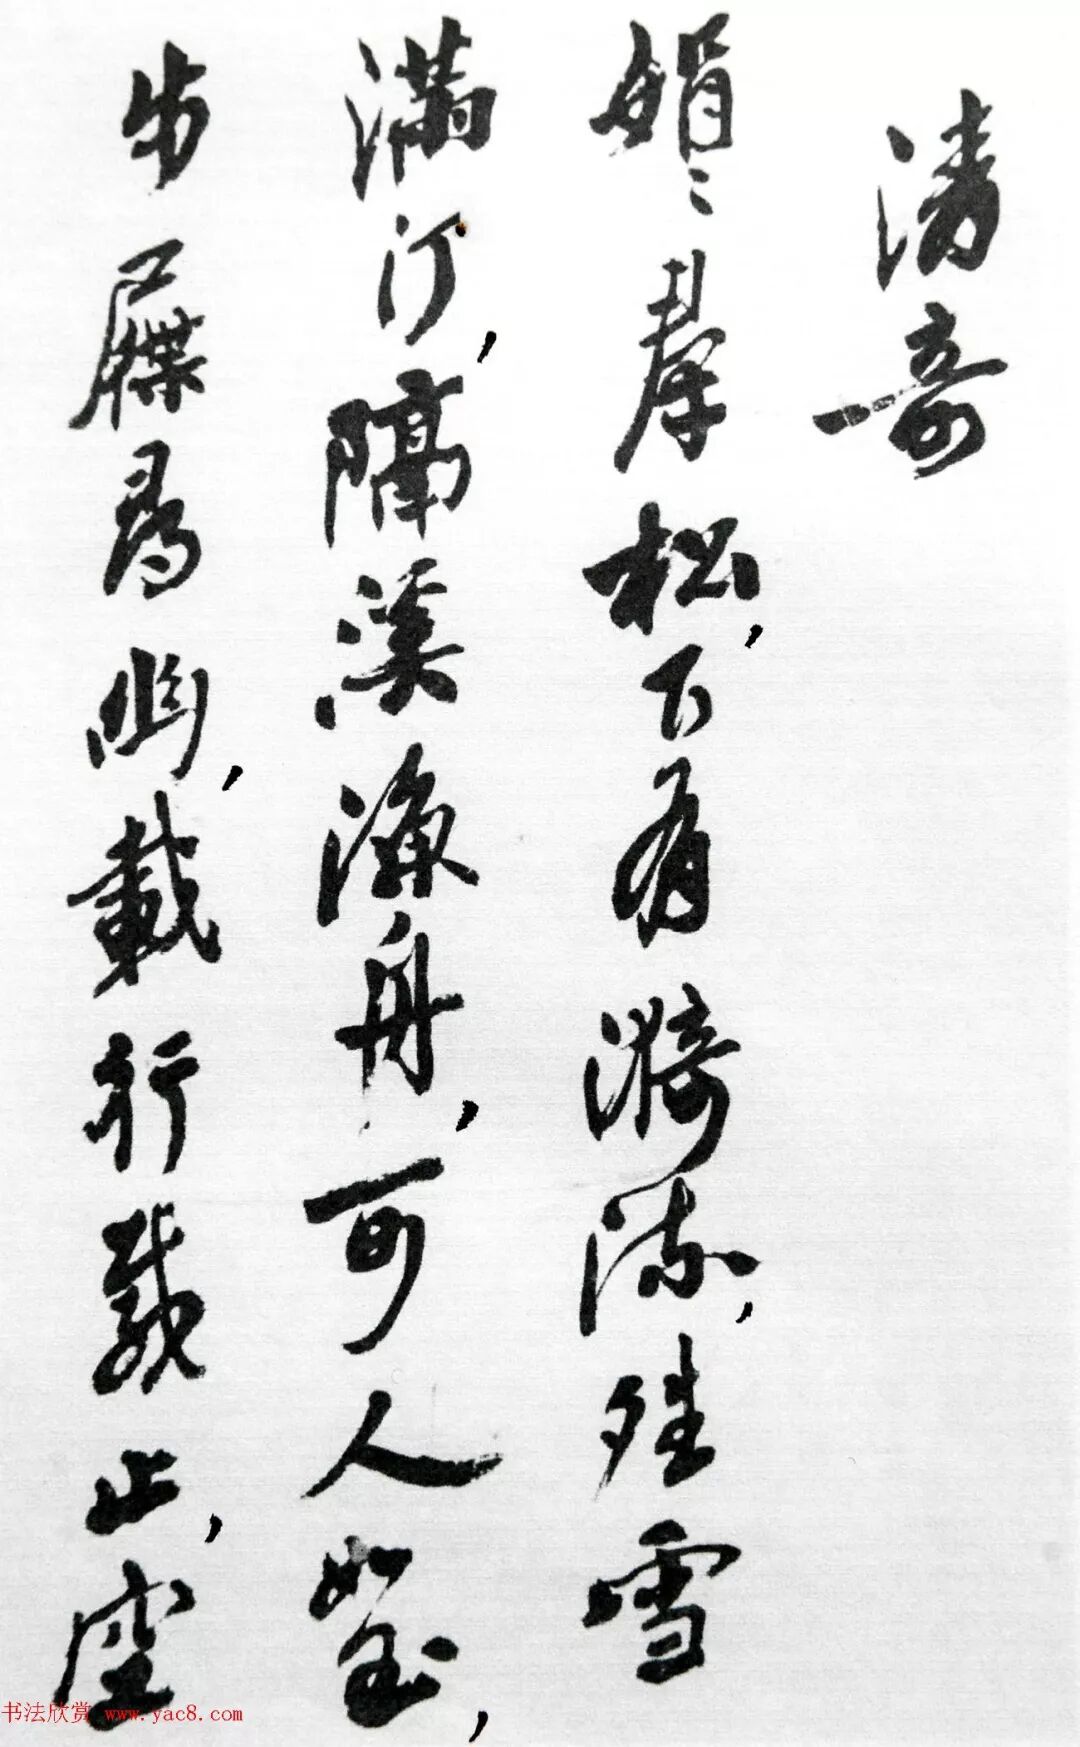 清奇
娟〻羣松，下有漪流，晴雪
滿汀，隔溪漁舟，可人如玉，
步屧尋幽，載行載止，空
书法欣赏 www.yac8.com